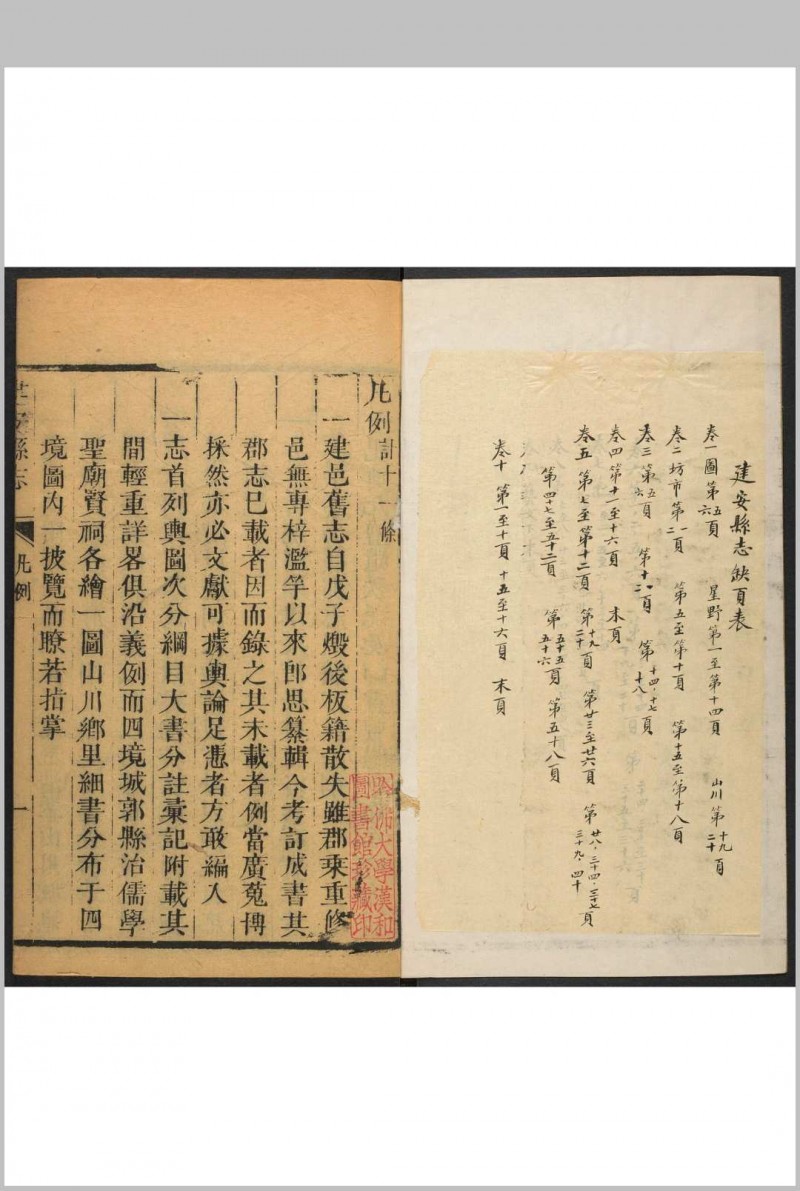 建安縣志缺頁表
卷一圖第五六頁 星野第一至第十四頁 山川第十九二十頁
卷二坊市第一二頁 第五至第十頁 第十五至第十八頁
卷三第五六頁 第十一頁 第十四·十七十八頁
卷四第十一至十六頁 末頁
卷五 第七至第十二頁 第十九二十頁 第廿三至廿六頁 第廿八·三十四·三十七三十九·四十頁
第四十七至五十二頁 第五十五五十六頁 第五十八頁
卷十 第一至十頁 十五至十六頁 末頁
凡例計十一條
一建邑舊志自戊子燬後板籍散失雖郡乘重修
邑無專梓濫竽以來卽思纂輯今考訂成書其
郡志已載者因而錄之其未載者例當廣蒐博
採然亦必文獻可據輿論足憑者方敢編入
一志首列輿圖次分綱目大書分註彙記附載其
間輕重詳畧俱沿義例而四境城郭縣治儒學
聖廟賢祠各繪一圖山川鄉里細書分布于四
境圖內一披覽而瞭若指掌
建安縣志
凡例
一
哈佛大學漢和
圖書館珍藏印